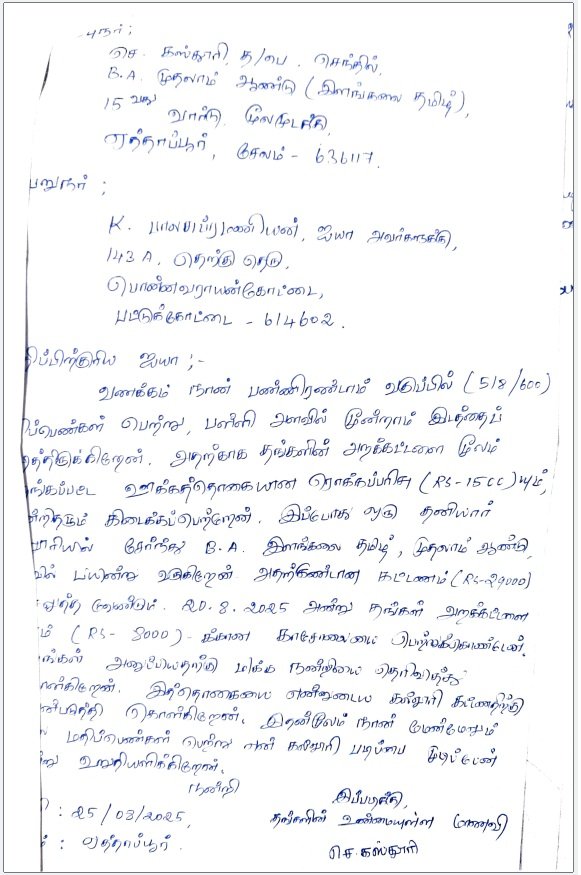 புநர்;
செ. கஸ்தூரி, த/பெ. செந்தில்,
B.A. முதலாம் ஆண்டு (இளங்கலை தமிழ்),
15 வது வார்டு
ஏத்தாப்பூர், சேலம் - 636117.
பறுநர் ;
K. பாலசுப்ரமணியன், ஐயா அவர்களுக்கு,
143 A, தெற்கு தெரு,
பொன்னவராயன்கோட்டை,
பட்டுக்கோட்டை - 614602.
திப்பிற்குரிய ஐயா ;-
வணக்கம் நான் பன்னிரண்டாம் வகுப்பில் (518/600)
திப்பெண்கள் பெற்று, பள்ளி அளவில் மூன்றாம் இடத்தைப்
அதற்காக தங்களின் அறக்கட்டளை மூலம்
ங்கப்பட்ட ஊக்கத்தொகையான ரொக்கப்பரிசு (RS-1500)யும்,
ன்றிதழும் கிடைக்கப்பெற்றேன். இப்போது ஒரு தனியார்
லூரியில் சேர்ந்து B.A. இளங்கலை தமிழ், முதலாம் ஆண்டு
வில் பயின்று வருகிறேன் கட்டணம் (Rs-29000)
செலுத்த வேண்டும். 20.8.2025 அன்று தங்கள் அறக்கட்டளை
ம் (RS- 8000) - க்கான காசோலையை பெற்றுக்கொண்டேன்.
ங்கள் மிக்க நன்றியை தெரிவித்துக்
ள்கிறேன். இத்தொகையை என்னுடைய கல்லூரி கட்டணத்திற்கு
ன்படுத்தி கொள்கிறேன். இதன்மூலம் நான் மேன்மேலும்
மதிப்பெண்கள் பெற்று என் கல்லூரி படிப்பை முடிப்பேன்
று உறுதியளிக்கிறேன்.
நன்றி
இப்படிக்கு,
: 25/08/2025, தங்களின் உண்மையுள்ள மாணவி
: ஏத்தாப்பூர். செ.கஸ்தூரி